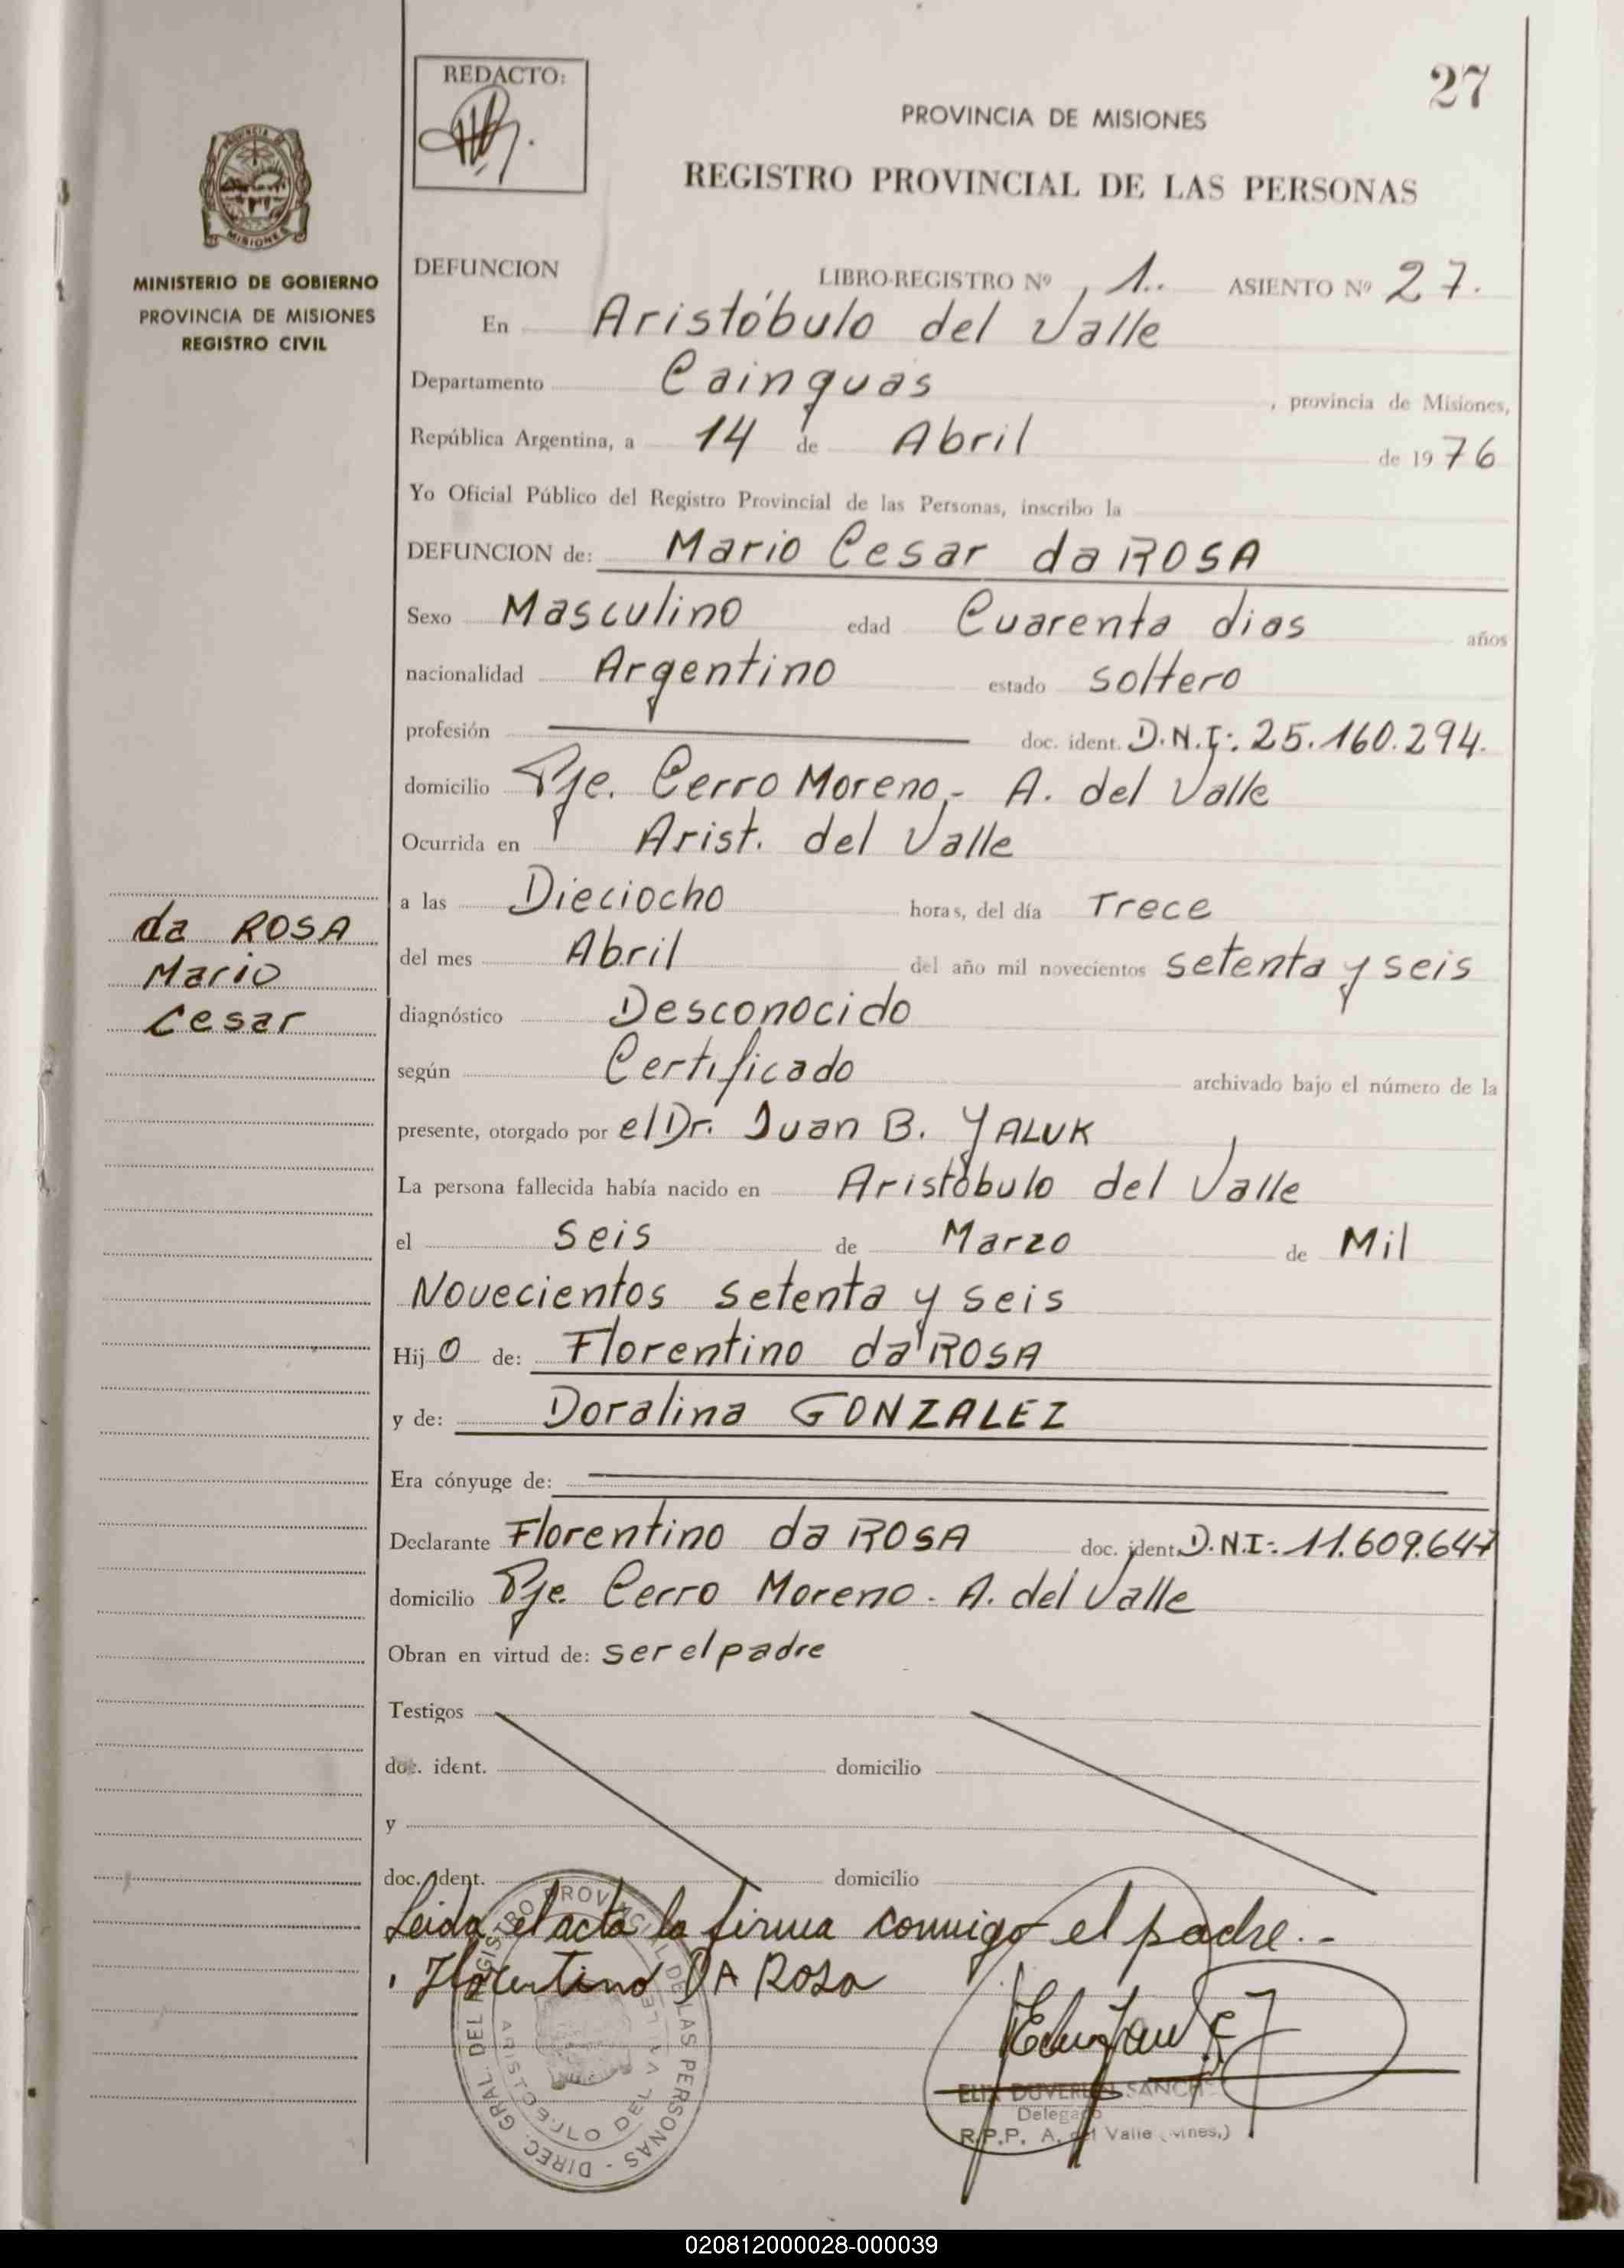 27
REDACTO:
PROVINCIA DE MISIONES
REGISTRO PROVINCIAL DE LAS PERSONAS
PROVINCIA DE
MISIONES
MINISTERIO DE GOBIERNO
PROVINCIA DE MISIONES
REGISTRO CIVIL
DEFUNCION LIBRO-REGISTRO Nº 1.. ASIENTO Nº 27.
En Aristóbulo del Valle
Departamento Cainguas, provincia de Misiones,
República Argentina, a 14 de Abril de 1976
Yo Oficial Público del Registro Provincial de las Personas, inscribo la
DEFUNCION de: Mario Cesar da ROSA
Sexo Masculino edad Cuarenta dias años
nacionalidad Argentino estado soltero
profesión doc. ident. D.N.I: 25.160.294.
domicilio Pje. Cerro Moreno,- A. del Valle
Ocurrida en Arist. del Valle
a las Dieciocho horas, del día Trece
del mes Abril del año mil novecientos setenta y seis
da ROSA
Mario
Cesar
diagnóstico Desconocido
según Certificado archivado bajo el número de la
presente, otorgado por el Dr. Juan B. YALUK
La persona fallecida había nacido en Aristóbulo del Valle
el seis de Marzo de Mil
Novecientos setenta y seis
Hijo de: Florentino da ROSA
y de: Doralina GONZALEZ
Era cónyuge de:
Declarante Florentino da ROSA doc. ident. D.N.I-: 11.609.647
domicilio Pje. Cerro Moreno. A. del Valle
Obran en virtud de: ser el padre
Testigos
doc. ident. domicilio
y
doc. ident. domicilio
Leida el acta la firma conmigo el padre.-
Florentino DA Rosa
DIREC. GRAL. DEL REGISTRO PROVINCIAL DE LAS PERSONAS
DEL VALLE
SANCHE
Delegado
R.P.P. A. del Valle (Mnes.)
020812000028-000039